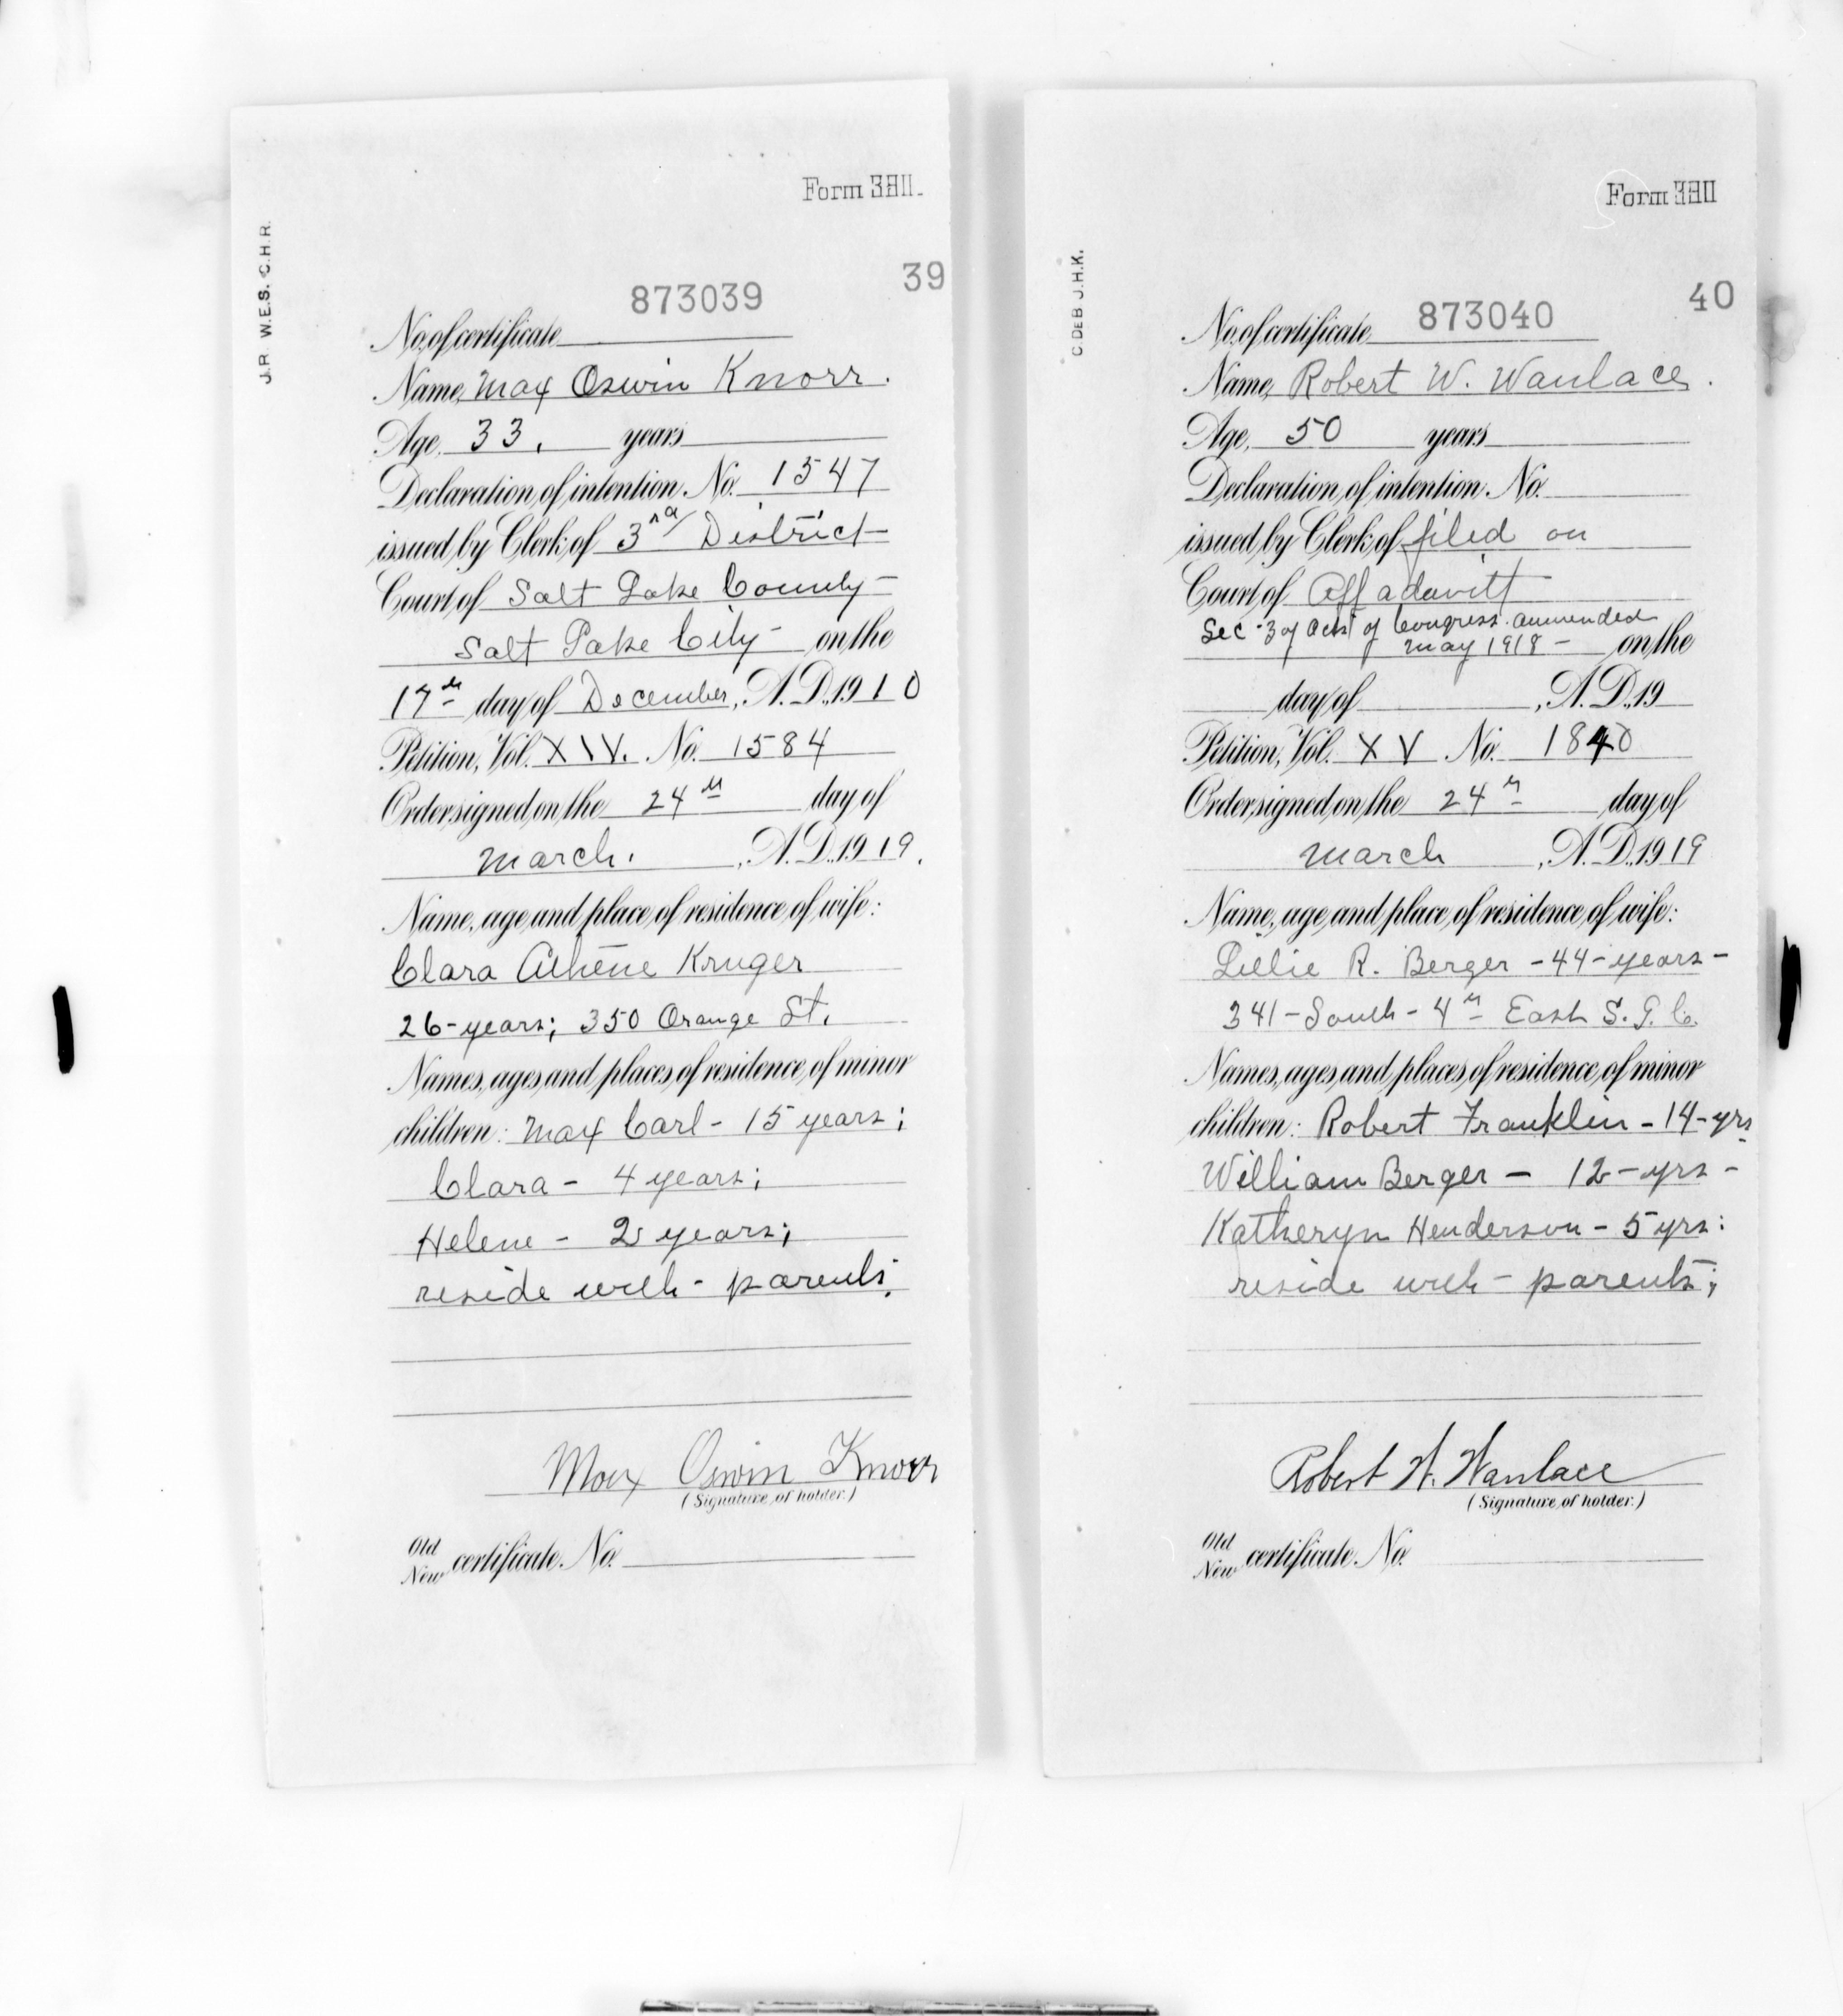 Form
39
J.R. W.E.S. C.H.R.
873039
No. of certificate
Name, Max Oswin Knorr.
Age, 33. years
Declaration of intention No. 1547
issued by Clerk of 3rd District
Court of Salt Lake County
Salt Lake City on the
17th day of December, A.D. 1910
Petition, Vol. XIV. No. 1584
Order signed on the 24th day of
March. , A.D. 1919.
Name, age and place of residence of wife:
Clara Kruger
26-years; 350 Orange St.
Names, ages and places of residence of minor
children: Max Carl - 15 years;
Clara - 4 years;
Helene - 2 years;
reside with - parents.
Max Oswin Knorr
(Signature of holder.)
Old
New certificate No.
Form
40
C.DEB J.H.K.
No. of certificate 873040
Name, Robert W. Wanlace.
Age, 50 years
Declaration of intention No.
issued by Clerk of filed on
Court of Affadavitt
Sec - 3 of Acts of Congress ammended
May 1918 - on the
day of , A.D. 19
Petition, Vol. XV No. 1840
Order signed on the 24th day of
March , A.D. 1919
Name, age and place of residence of wife:
Lillie R. Berger - 44 - years -
341 - South - 4th East S. L. C.
Names, ages and places of residence of minor
children: Robert Franklin - 14 - yrs
William Berger - 12 - yrs -
Katheryn Henderson - 5 yrs:
reside with - parents;
Robert W. Wanlace
(Signature of holder.)
Old
New certificate No.